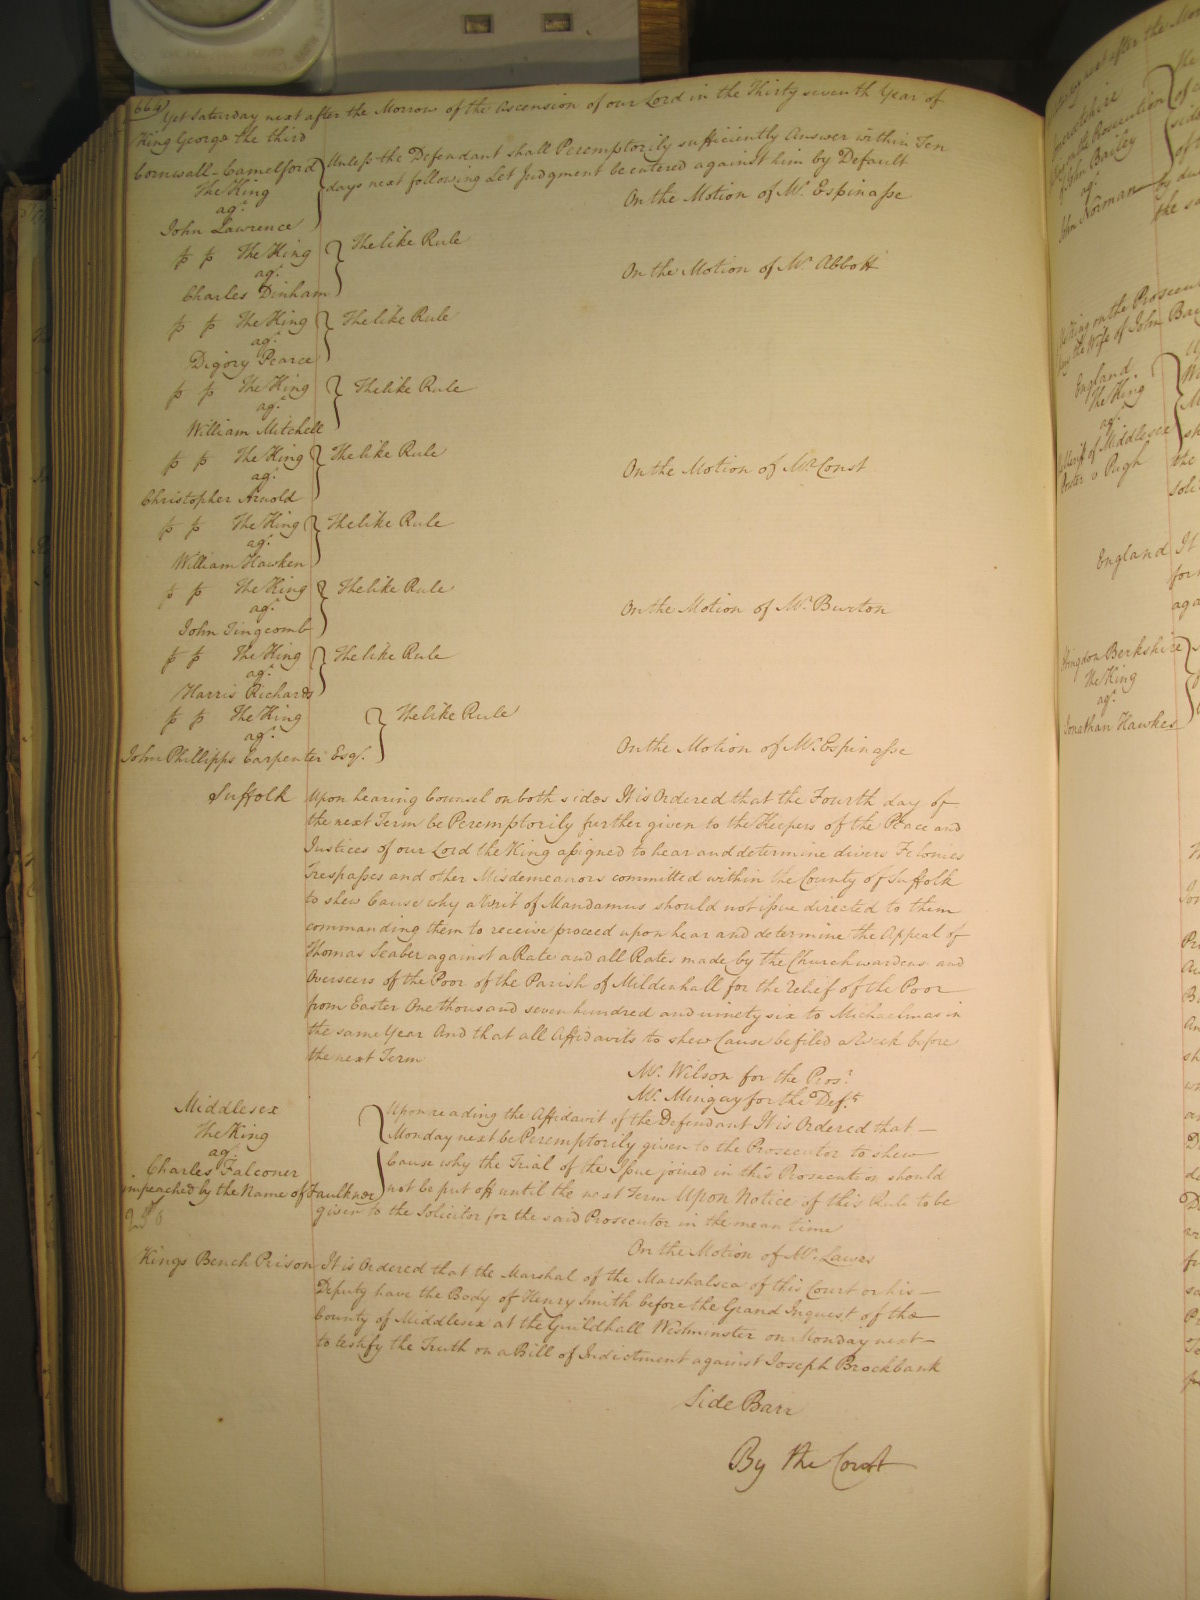 664
Yet Saturday next after the Morrow of the Ascension of our Lord in the Thirty seventh Year of
King George the third
Cornwall - Camelford
The King
agt.
John Lawrence
Unless the Defendant shall Peremptorily sufficiently Answer within Ten
days next following Let Judgment be entered against him by Default
On the Motion of Mr. Espinasse
p p The King
agt.
Charles Dinham
The like Rule
On the Motion of Mr. Abbott
p p The King
agt.
Digory Pearce
The like Rule
p p The King
agt.
William Mitchell
The like Rule
p p The King
agt.
Christopher Arnold
The like Rule
On the Motion of Mr. Const
p p The King
agt.
William Hawken
The like Rule
p p The King
agt.
John Tingcomb
The like Rule
On the Motion of Mr. Burton
p p The King
agt.
Harris Richards
The like Rule
p p The King
agt.
John Phillipps Carpenter Esq.
The like Rule
On the Motion of Mr. Espinasse
Suffolk
Upon hearing Counsel on both sides It is Ordered that the Fourth day of
the next Term be Peremptorily further given to the Keepers of the Peace and
Justices of our Lord the King assigned to hear and determine divers Felonies
Trespasses and other Misdemeanors committed within the County of Suffolk
to shew Cause why a Writ of Mandamus should not issue directed to them
commanding them to receive proceed upon hear and determine the Appeal of
Thomas Seaber against a Rate and all Rates made by the Churchwardens and
Overseers of the Poor of the Parish of Mildenhall for the relief of the Poor
from Easter One thousand seven hundred and ninety six to Michaelmas in
the same Year And that all Affidavits to shew Cause be filed a Week before
the next Term
Mr. Wilson for the Prosr.
Mr. Mingay for the Deft.
Middlesex
The King
agt.
Charles Falconer
impeached by the Name of Faulkner
Upon reading the Affidavit of the Defendant It is Ordered that
Monday next be Peremptorily given to the Prosecutor to shew
Cause why the Trial of the Issue joined in this Prosecution should
not be put off until the next Term Upon Notice of this Rule to be
given to the Solicitor for the said Prosecutor in the mean time
On the Motion of Mr. Lawes
Kings Bench Prison
It is Ordered that the Marshal of the Marshalsea of this Court or his
Deputy have the Body of Henry Smith before the Grand Inquest of the
County of Middlesex at the Guildhall Westminster on Monday next
to testify the Truth on a Bill of Indictment against Joseph Brockbank
Side Barr
By the Court
of John Bailey
agt.
John Norman
England
The King
agt.
of Middlesex
v Pugh
England It
Berkshire
The King
agt.
Jonathan Hawkes